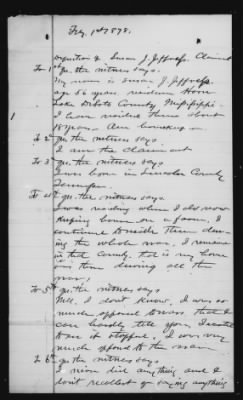 Feby. 1st 1878.
Deposition of Susan J. Jeffress Claimant
To 1st qu. the witness says.
My name is Susan J. Jeffress
age 56 years. residence Horn
Lake DeSoto County Mississippi.
I have resided there about
18 years. Am housekeeper.
To 2d qu. the witness says
I am the claimant
To 3d qu. the witness says
I was born in Lincoln County
Tennessee.
To 4th qu. the witness says
I was residing where I do now
keeping house on a farm, I
continued to reside there dur-
ing the whole war, I remained
in that County. That is my home
was there during all the
war,
To 5th qu. the witness says
Well, I don't know, I was so
much opposed to war, that I
can hardly tell you, I wanted
to see it stopped, I was very
much opposed to the war.
To 6th qu. the witness says
I never did any thing and I
don't recollect of saying anything